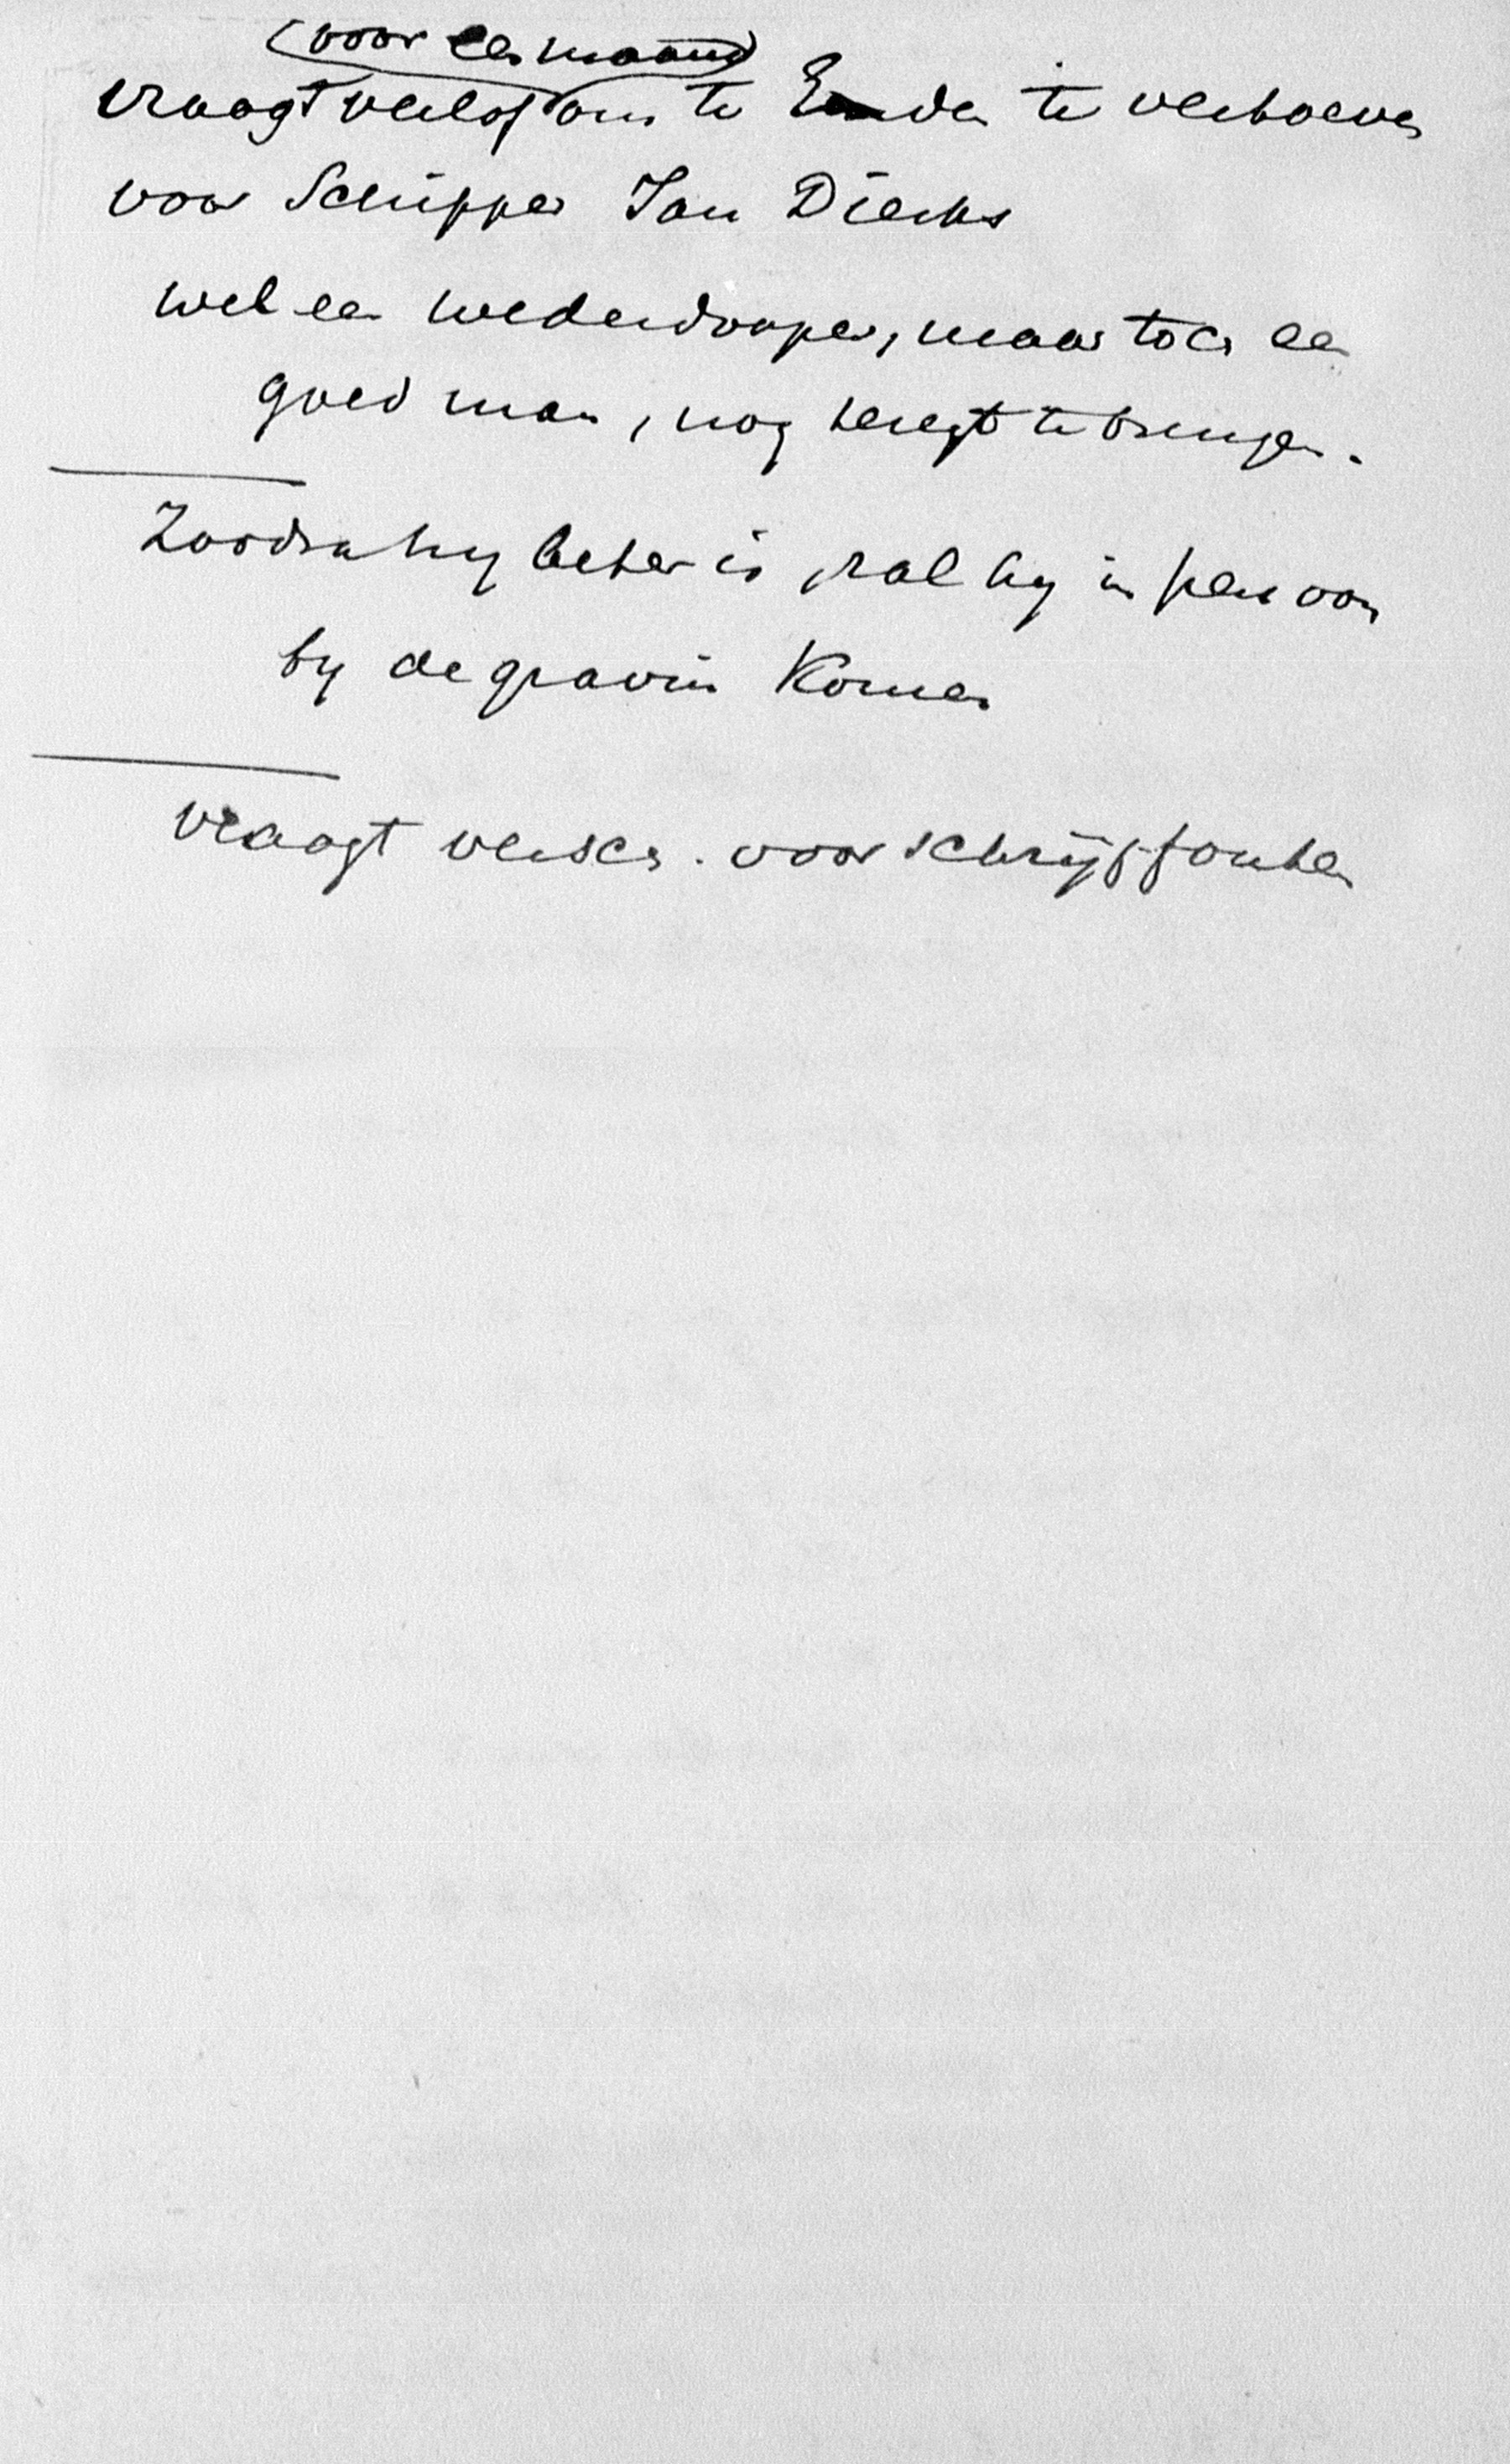 (voor een maand)
vraagt verlof om te Emden te vertoeven
voor Schipper Jan Dierks
wel een wederdooper, maar toch een
goed man, nog te regt te brengen.
Zoodra hy beter is, zal hy in persoon
by de gravin komen
vraagt versch. voor schrijffouten